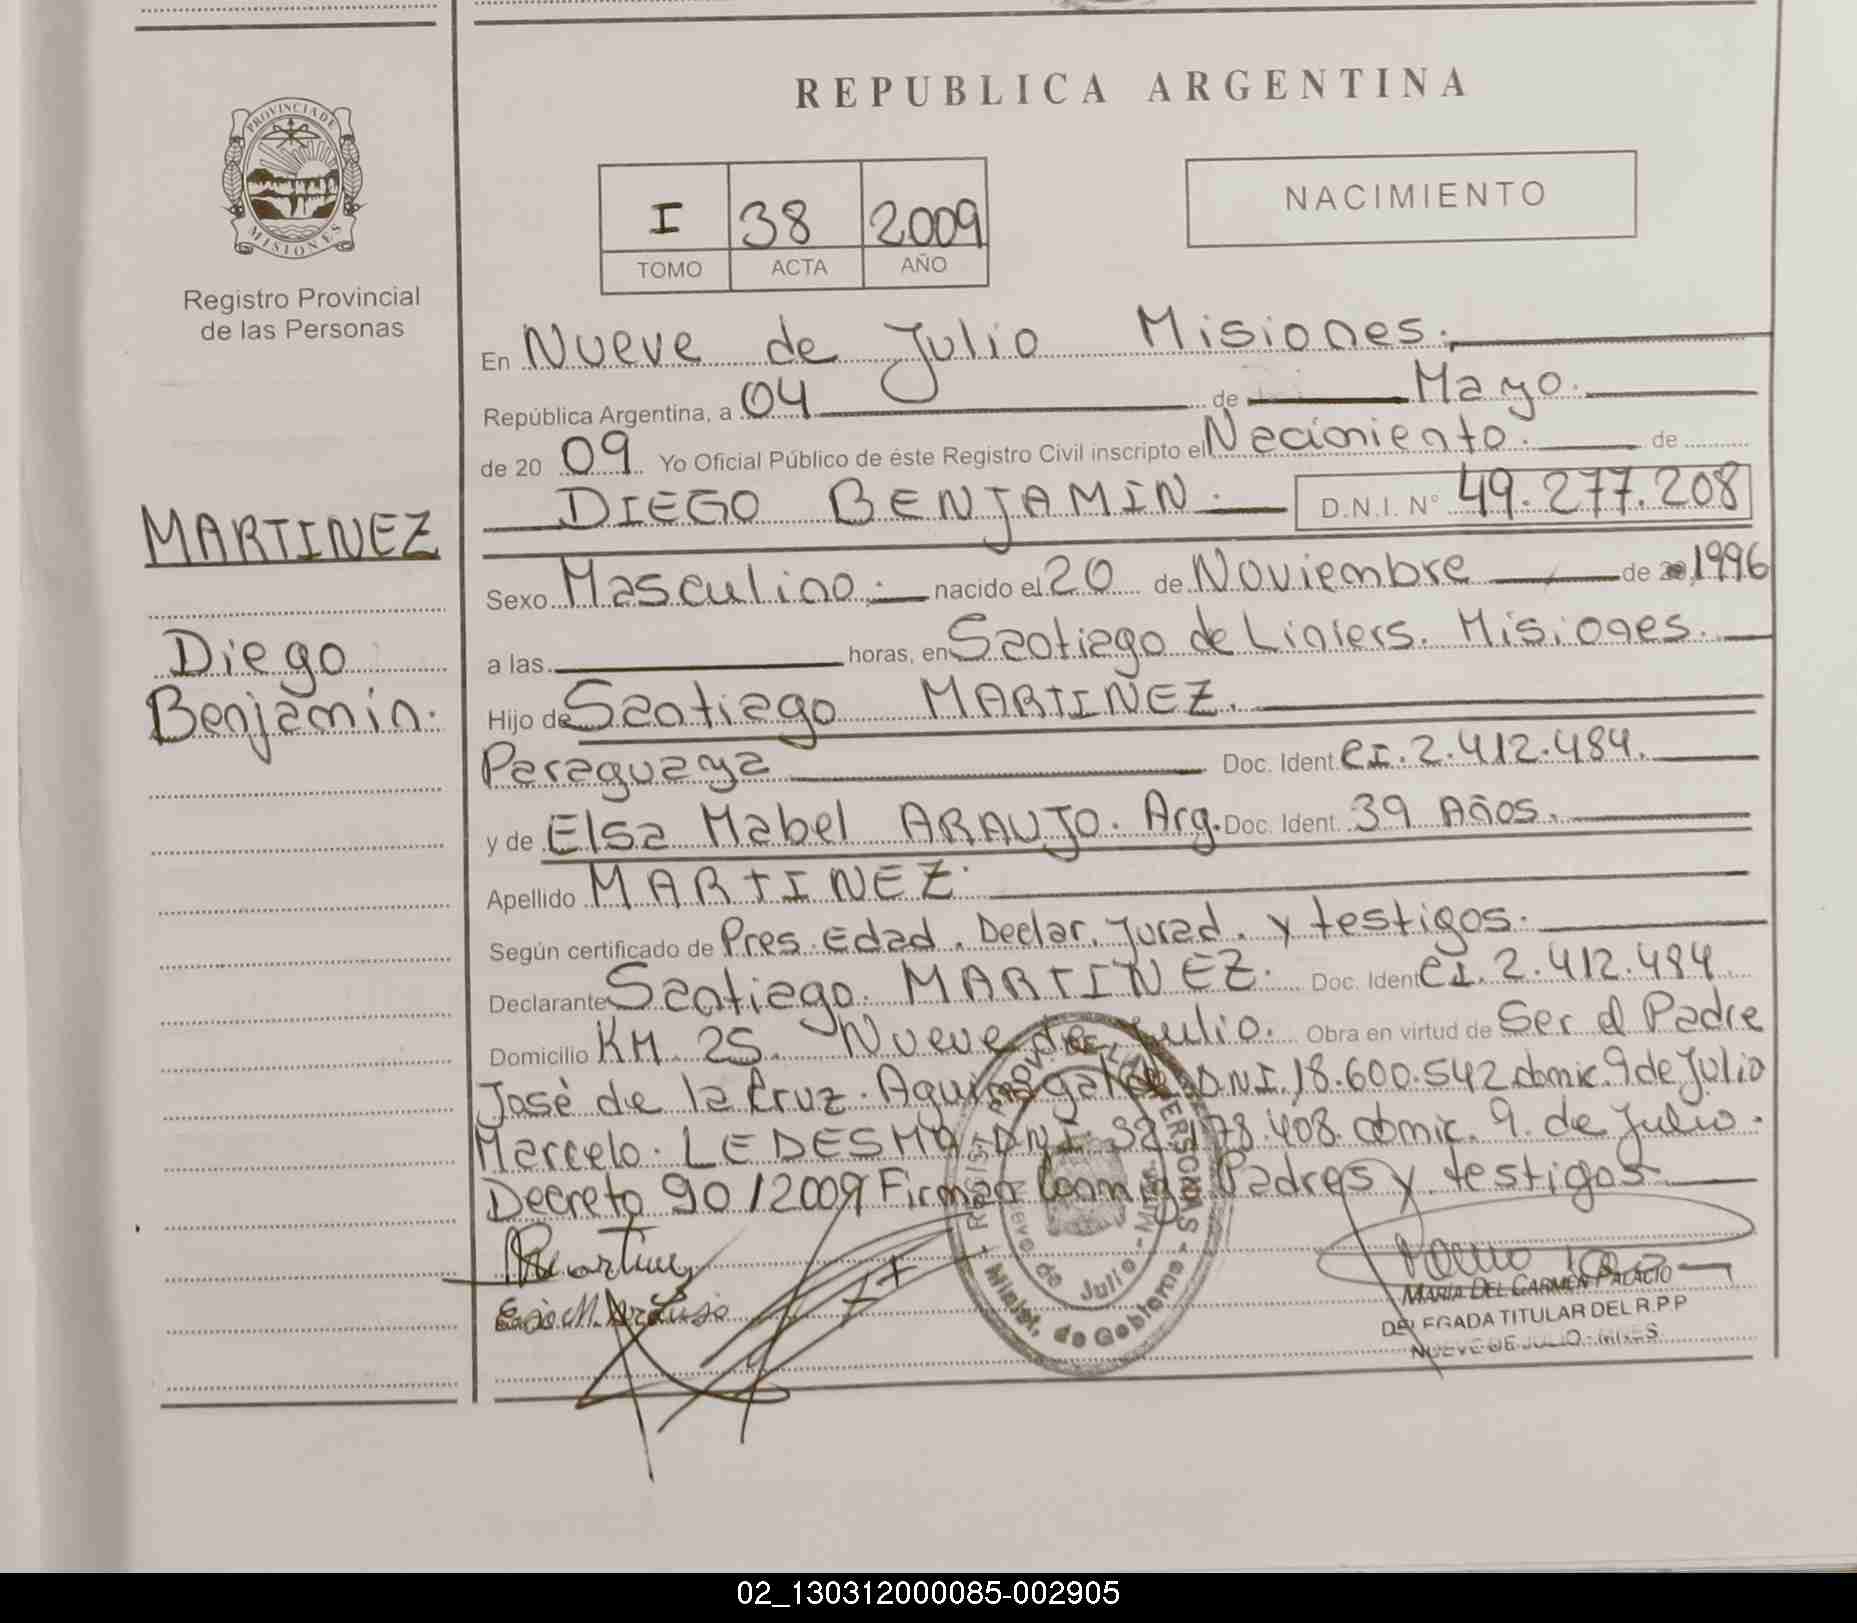 REPUBLICA ARGENTINA
PROVINCIA DE MISIONES
Registro Provincial
de las Personas
I 38 2009
TOMO ACTA AÑO
NACIMIENTO
MARTINEZ
Diego
Benjamín.
En Nueve de Julio Misiones.
República Argentina, a 04 de Mayo.
de 20 09 Yo Oficial Público de éste Registro Civil inscripto el Nacimiento. de
DIEGO BENJAMIN. D.N.I. N° 49.277.208
Sexo Masculino. nacido el 20 de Noviembre de 1996
a las horas, en Santiago de Liniers. Misiones.
Hijo de Santiago MARTINEZ.
Paraguaya Doc. Ident. CI. 2.412.484.
y de Elsa Mabel ARAUJO. Arg. Doc. Ident. 39 Años.
Apellido MARTINEZ.
Según certificado de Pres. Edad. Declar. Jurad. y testigos.
Declarante Santiago. MARTINEZ. Doc. Ident CI. 2.412.484.
Domicilio KM. 25. Nueve de Julio. Obra en virtud de Ser el Padre
José de la Cruz. DNI. 18.600.542. domic. 9 de Julio
Marcelo. LEDESMA DNI. 32.178.408. domic. 9. de Julio.
Decreto 90/2009 Firman Conmigo Padres y testigos
Minist. de Gobierno
MARIA DEL CARMEN PALACIO
DELEGADA TITULAR DEL R.P.P
NUEVE DE JULIO - MNES
02_130312000085-002905